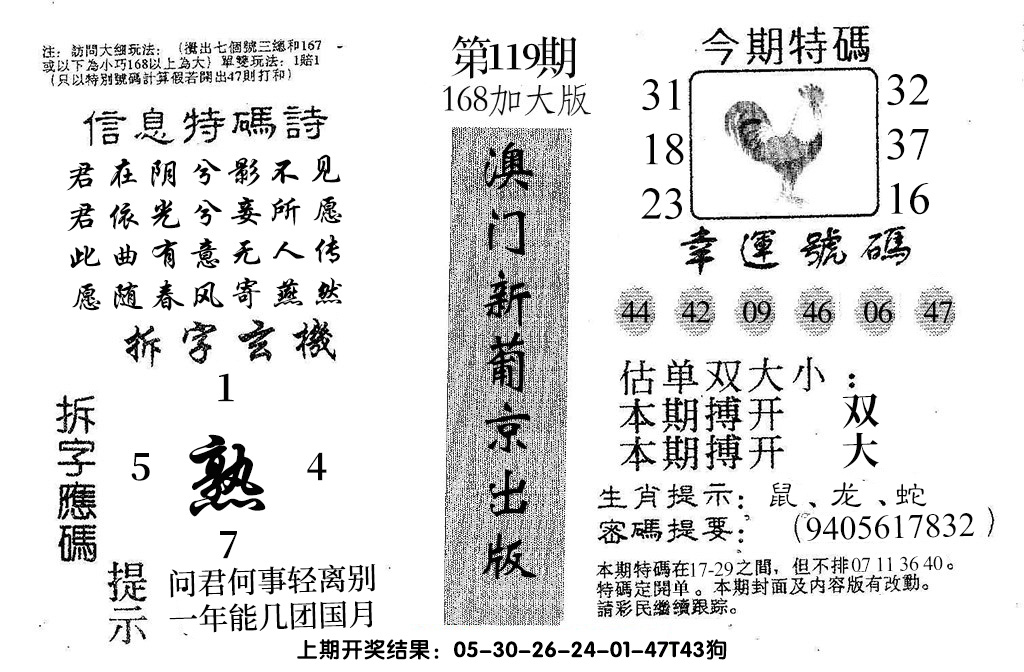 注：訪問大细玩法：（攪出七個號三總和167
或以下為小巧168以上為大）單雙玩法：1賠1
（只以特別號碼計算假若開出47則打和）
信息特碼詩
君在阴兮影不见
君依光兮妾所愿
此曲有意无人传
愿随春风寄燕然
拆字玄機
拆字應碼
1
5 熟 4
7
提示
问君何事轻离别
一年能几团国月
第119期
168加大版
澳门新葡京出版
今期特碼
31 32
18 37
23 16
幸運號碼
44 42 09 46 06 47
估单双大小：
本期搏开 双
本期搏开 大
生肖提示：鼠、龙、蛇
密碼提要：（9405617832）
本期特碼在17-29之間，但不排07 11 36 40。
特碼定開单。本期封面及内容版有改動。
請彩民繼續跟踪。
上期开奖结果：05-30-26-24-01-47T43狗